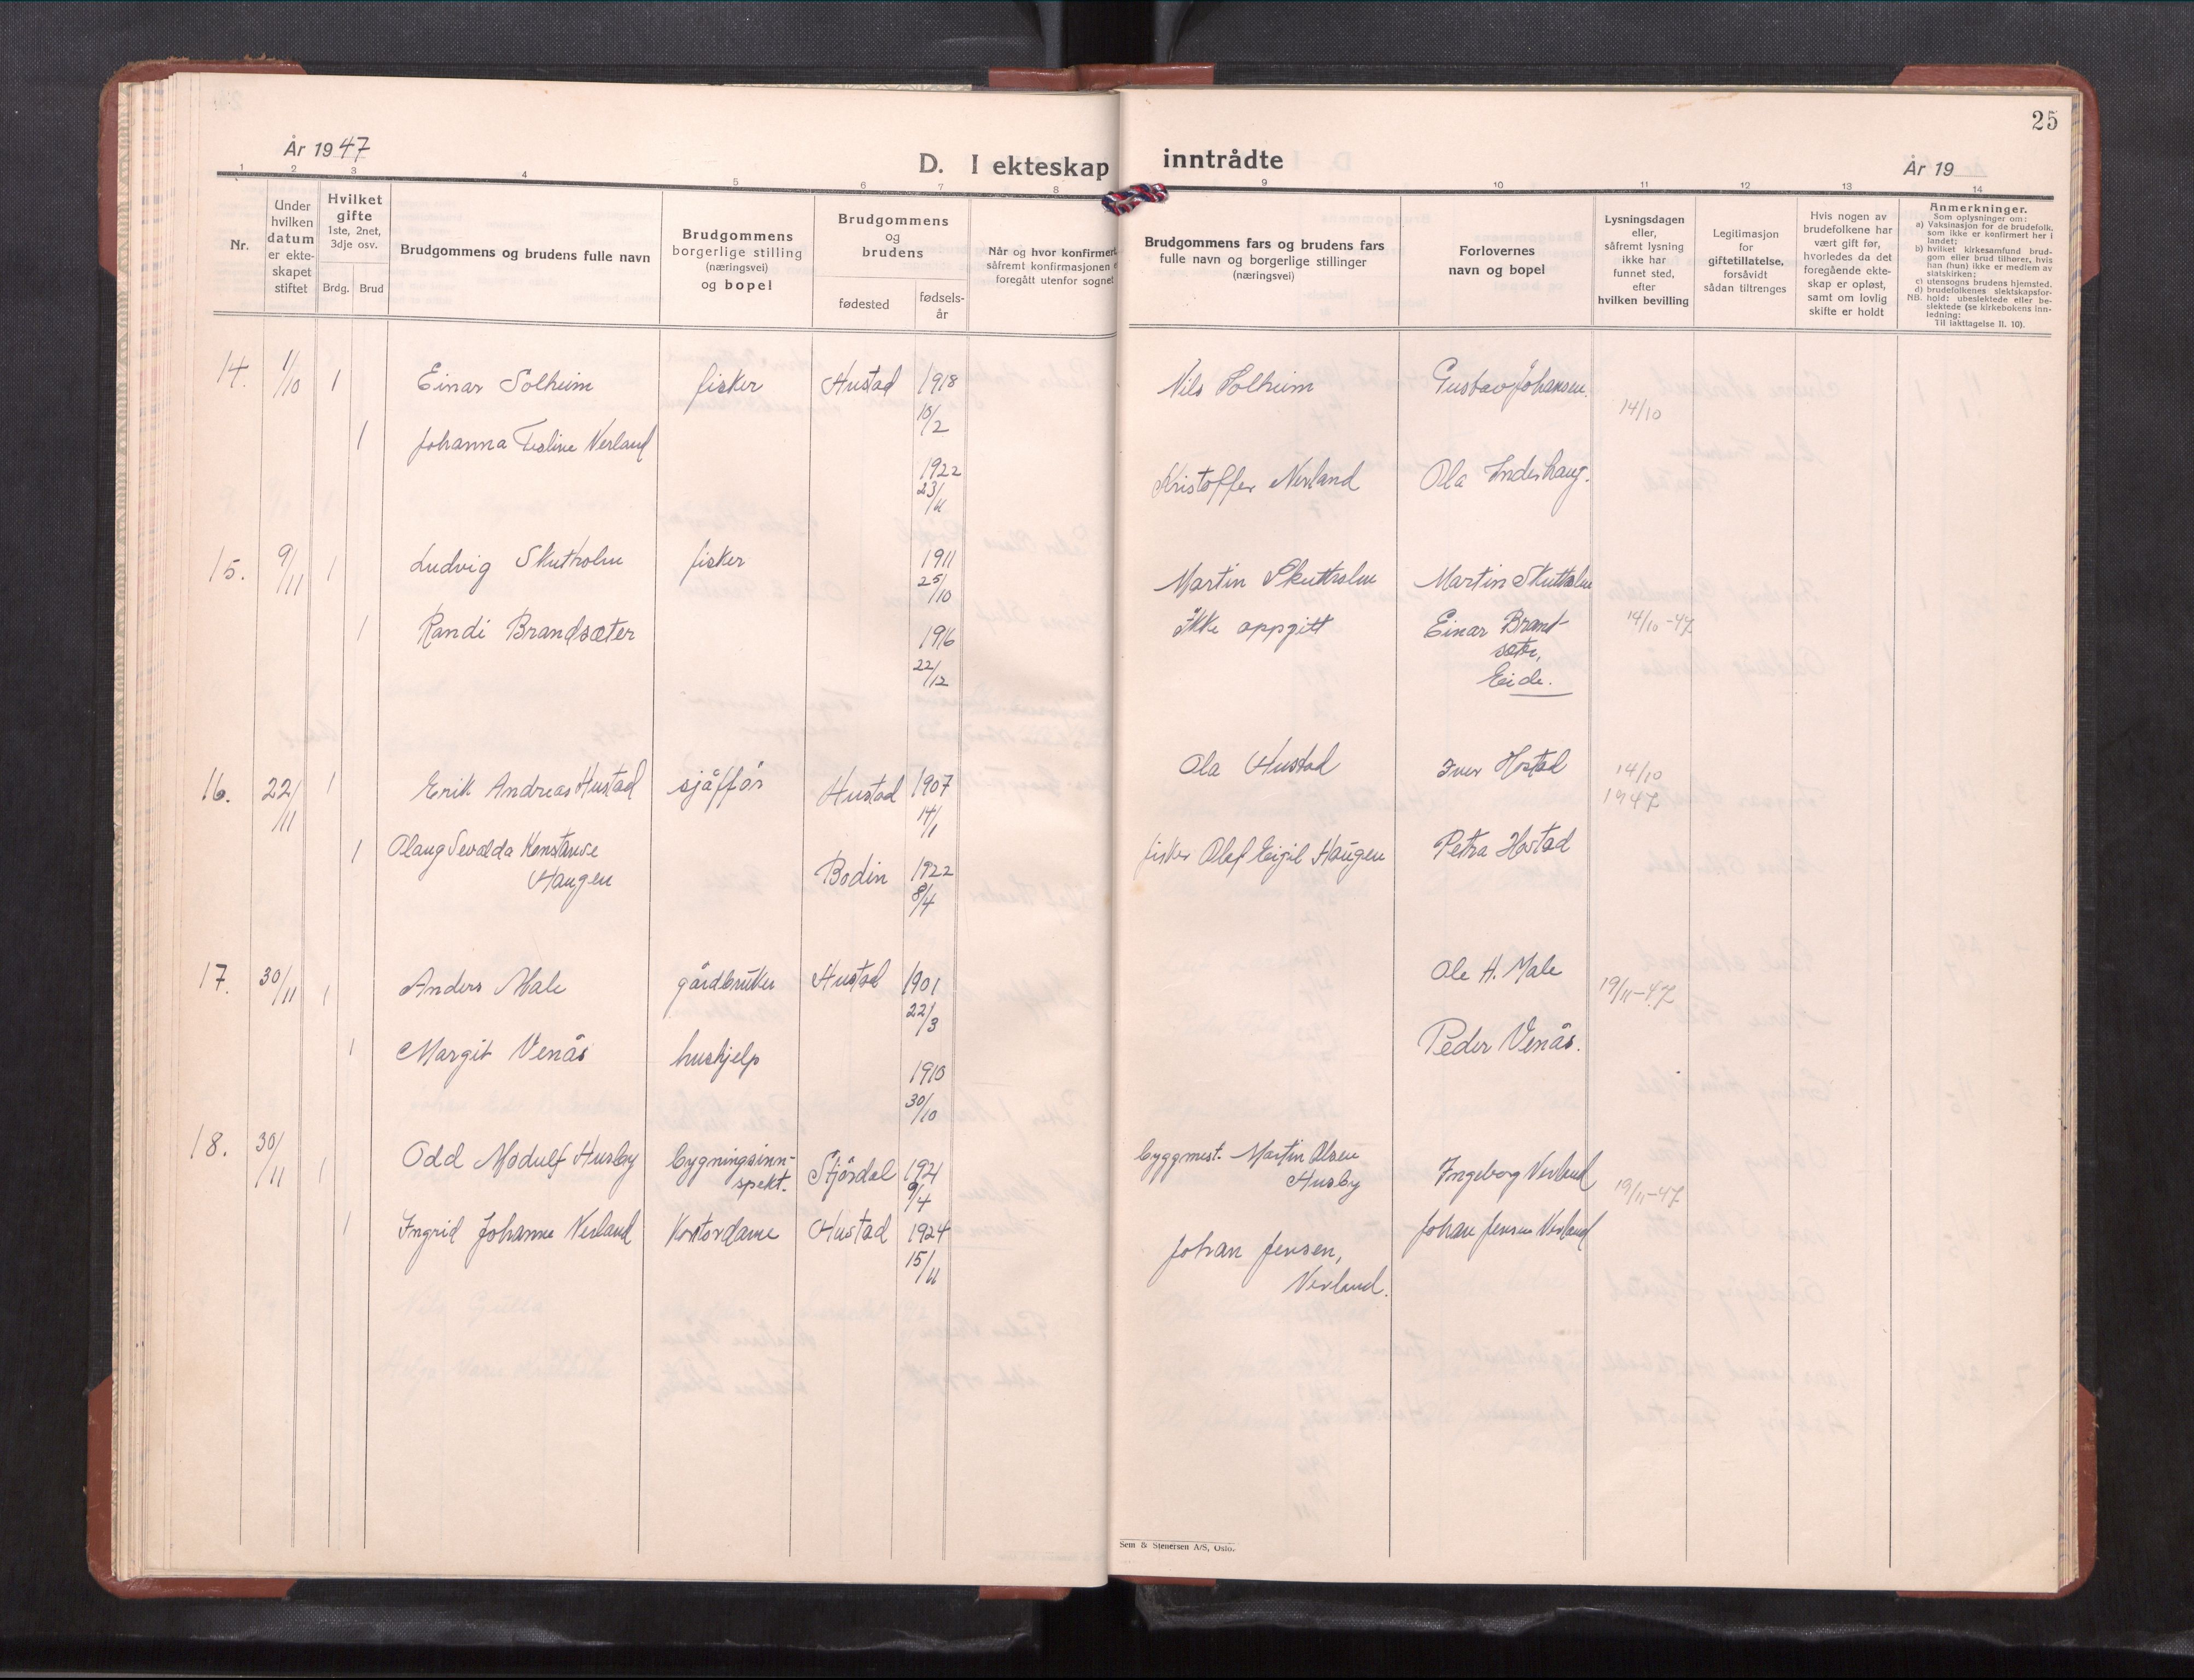 25
År 1947
D. I ekteskap inntrådte
År 19
1 2 3 4 5 6 7 8 9 10 11 12 13 14
Nr.
Under
hvilken
datum
er ekte-
skapet
stiftet
Hvilket
gifte
1ste, 2net,
3dje osv.
Brdg. Brud
Brudgommens og brudens fulle navn
Brudgommens
borgerlige stilling
(næringsvei)
og bopel
Brudgommens
og
brudens
fødested
fødsels-
år
Når og hvor konfirmert
såfremt konfirmasjonen
foregått utenfor sognet
Brudgommens fars og brudens fars
fulle navn og borgerlige stillinger
(næringsvei)
Forlovernes
navn og bopel
Lysningsdagen
eller,
såfremt lysning
ikke har
funnet sted,
efter
hvilken bevilling
Legitimasjon
for
giftetillatelse,
forsåvidt
sådan tiltrenges
Hvis nogen av
brudefolkene har
vært gift før,
hvorledes da det
foregående ekte-
skap er opløst,
samt om lovlig
skifte er holdt
Anmerkninger.
Som oplysninger om:
a) Vaksinasjon for de brudefolk,
som ikke er konfirmert her i
landet;
b) hvilket kirkesamfund brud-
gom eller brud tilhører, hvis
han (hun) ikke er medlem av
statskirken;
c) utensogns brudens hjemsted.
d) brudefolkenes slektskapsfor-
NB. hold: ubeslektede eller be-
slektede (se kirkebokens inn-
ledning:
Til iakttagelse II. 10).
14. 1/10 1 Einar Solheim fisker Hustad 1918 Nils Solheim Gustav Johansen.
10/2 14/10
1 Johanna Verland
1922 Kristoffer Nerland Ola Inderhaug.
23/11
15. 9/11 1 Ludvig Skutholm fisker 1911 Martin Skutholm Martin Skutholm
25/10
1 Randi Brandsæter 1916 ikke oppgitt Einar Brand- 14/10-47
22/12 sæter,
Eide.
16. 22/11 1 Erik Andreas Hustad sjåffør Hustad 1907 Ola Hustad Iver Hostad 14/10
14/1 1947
1 Olaug Sevalda Konstanse fisker Olaf Eigil Haugen Petra Hostad
Haugen Bodin 1922
8/4
17. 30/11 1 Anders Male gårdbruker Hustad 1901 Ole H. Male 19/11-47
22/3
1 Margit Venås hushjelp 1910 Peder Venås.
30/10
18. 30/11 1 Odd Modulf Husby bygningsinn- Stjørdal 1921 byggmest. Martin Olsen Ingeborg Nerland
spekt. 9/4 Husby 19/11-47
1 Ingrid Johanne Nerland Kontordame Hustad 1924 Johan Jensen, Johan Jensen Nerland
15/11 Nerland.
Sem & Stenersen A/S, Oslo.